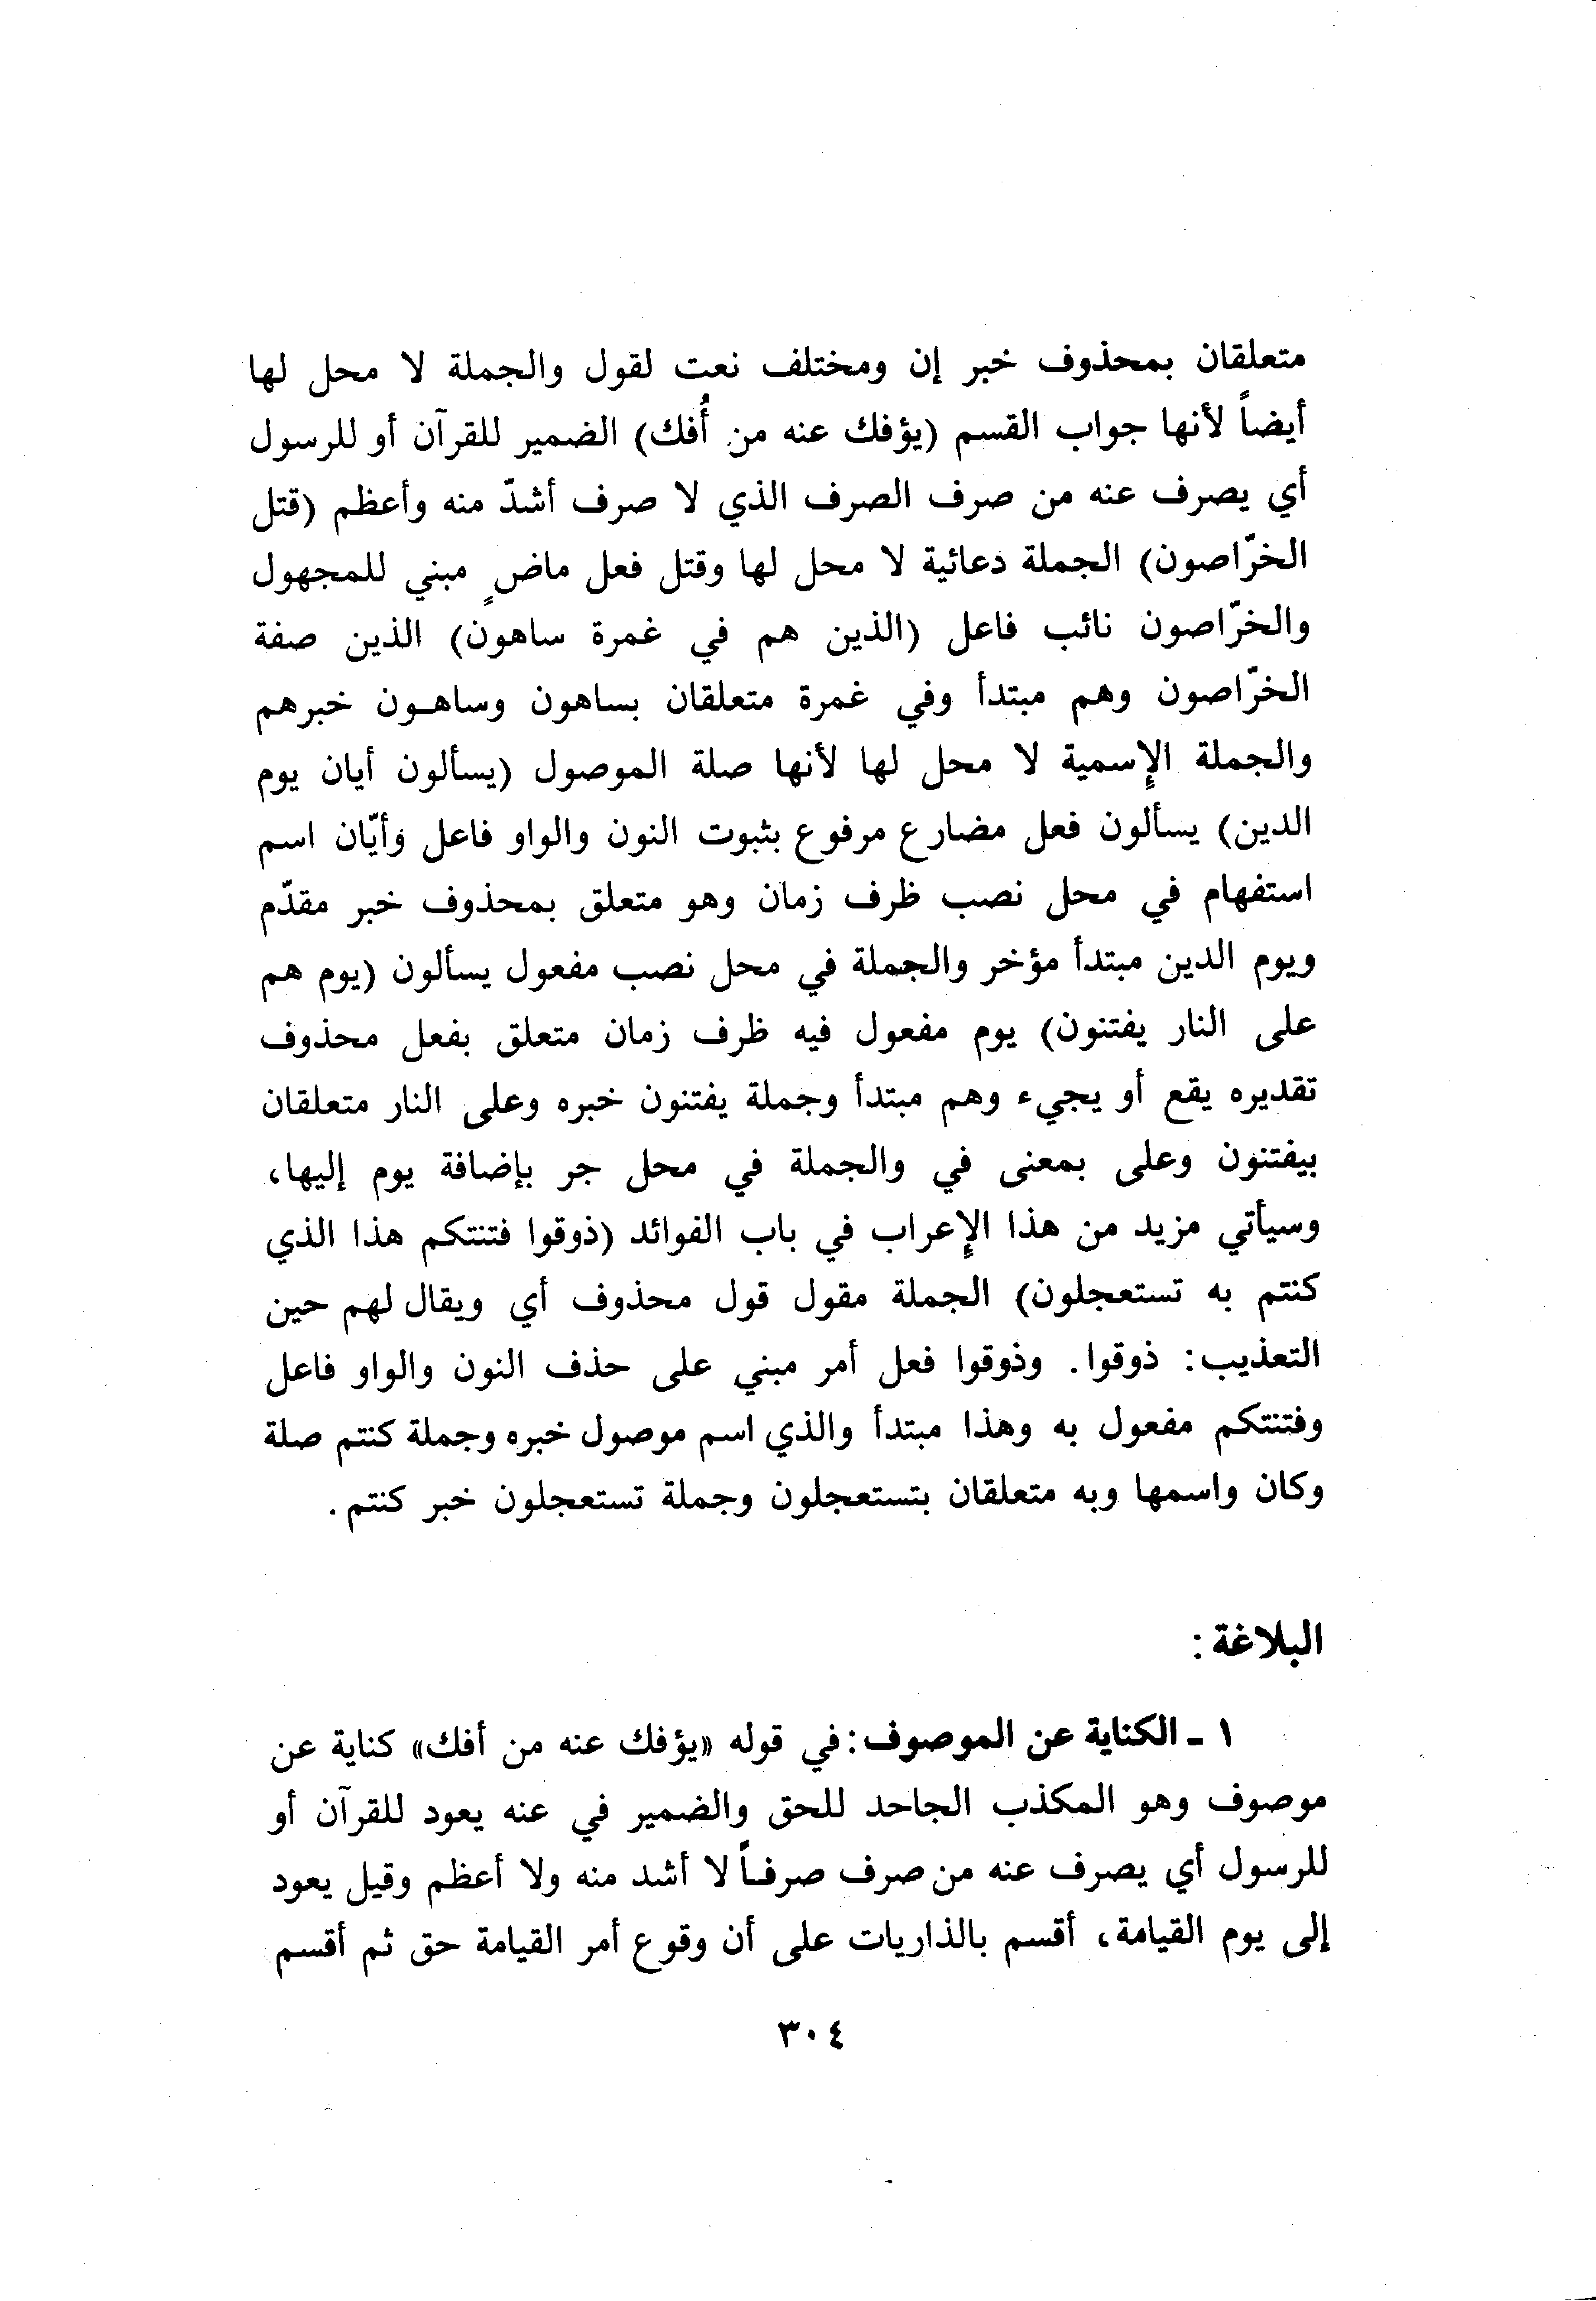 متعلقان بمحذوف خبر إن ومختلف نعت لقول والجملة لا محل لها
أيضاً لأنها جواب القسم (يؤفك عنه من أُفك) الضمير للقرآن أو للرسول
أي يصرف عنه من صرف الصرف الذي لا صرف أشدّ منه وأعظم (قتل
الخرّاصون) الجملة دعائية لا محل لها وقتل فعل ماضٍ مبني للمجهول
والخرّاصون نائب فاعل (الذين هم في غمرة ساهون) الذين صفة
الخرّاصون وهم مبتدأ وفي غمرة متعلقان بساهون وساهـون خبرهم
والجملة الإسمية لا محل لها لأنها صلة الموصول (يسألون أيان يوم
الدين) يسألون فعل مضارع مرفوع بثبوت النون والواو فاعل وأيّان اسم
استفهام في محل نصب ظرف زمان وهو متعلق بمحذوف خبر مقدّم
ويوم الدين مبتدأ مؤخر والجملة في محل نصب مفعول يسألون (يوم هم
على النار يفتنون) يوم مفعول فيه ظرف زمان متعلق بفعل محذوف
تقديره يقع أو يجيء وهم مبتدأ وجملة يفتنون خبره وعلى النار متعلقان
بيفتنون وعلى بمعنى في والجملة في محل جر بإضافة يوم إليها،
وسيأتي مزيد من هذا الإعراب في باب الفوائد (ذوقوا فتنتكم هذا الذي
كنتم به تستعجلون) الجملة مقول قول محذوف أي ويقال لهم حين
التعذيب: ذوقوا. وذوقوا فعل أمر مبني على حذف النون والواو فاعل
وفتنتكم مفعول به وهذا مبتدأ والذي اسم موصول خبره وجملة كنتم صلة
وكان واسمها وبه متعلقان بتستعجلون وجملة تستعجلون خبر كنتم.
البلاغة:
١ ـ الكناية عن الموصوف: في قوله «يؤفك عنه من أفك» كناية عن
موصوف وهو المكذب الجاحد للحق والضمير في عنه يعود للقرآن أو
للرسول أي يصرف عنه من صرف صرفـاً لا أشد منه ولا أعظم وقيل يعود
إلى يوم القيامة، أقسم بالذاريات على أن وقوع أمر القيامة حق ثم أقسم
٣٠٤